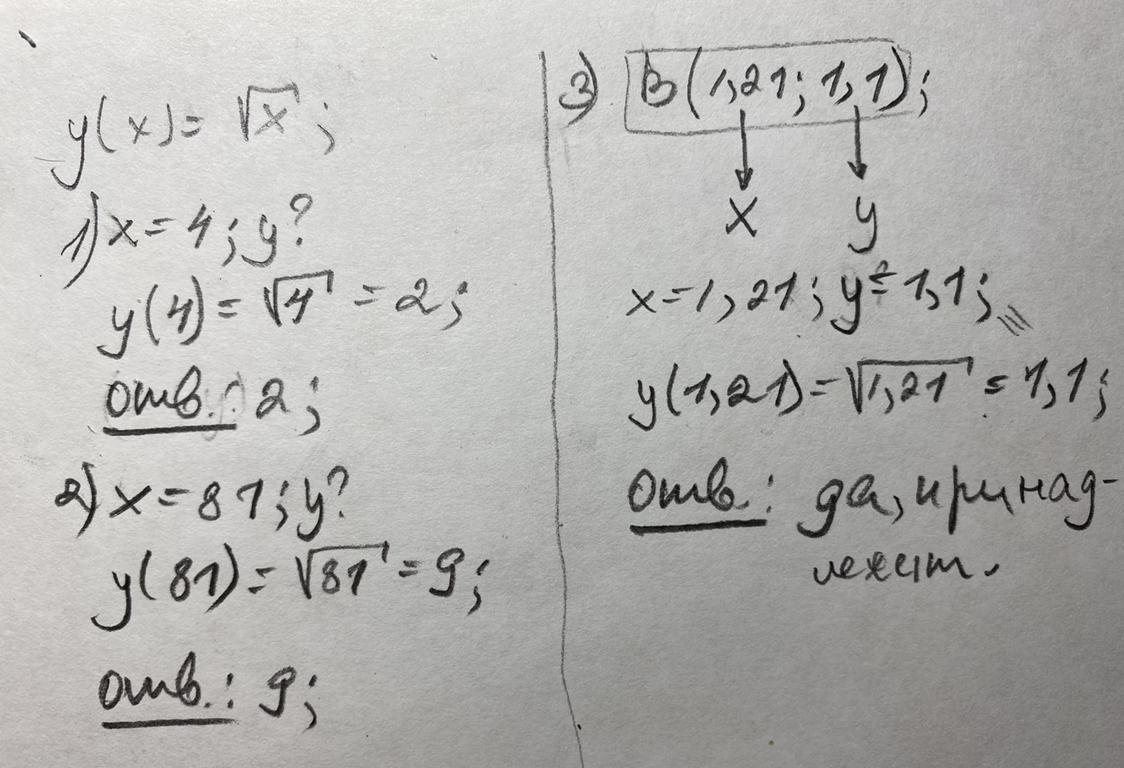 y(x) = √x ;
1) x = 4 ; y?
y(4) = √4 = 2 ;
отв. : 2 ;
2) x = 81 ; y?
y(81) = √81 = 9 ;
отв. : 9 ;
3) B(1,21 ; 1,1) ;
x y
x = 1,21 ; y ≟ 1,1 ;
y(1,21) = √1,21 = 1,1 ;
отв. : да, принад-
лежит.